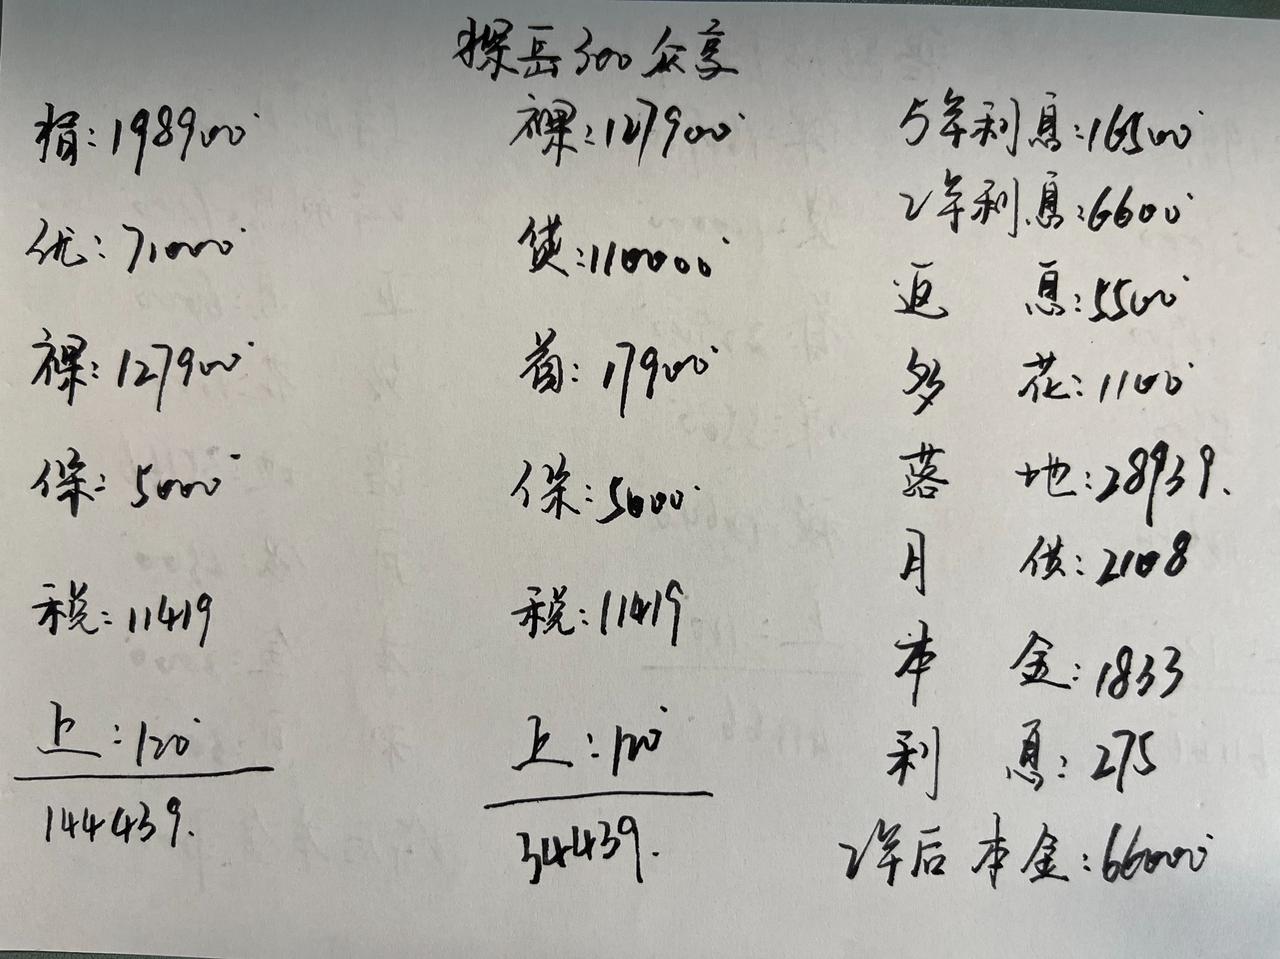 探岳300众享
指:198900
优:71000
裸:127900
保:5000
税:11419
上:120
144439.
裸:127900
贷:110000
首:17900
保:5000
税:11419
上:120
34439.
5年利息:16500
2年利息:6600
返息:5500
多花:1100
落地:28939.
月供:2108
本金:1833
利息:275
2年后本金:66000